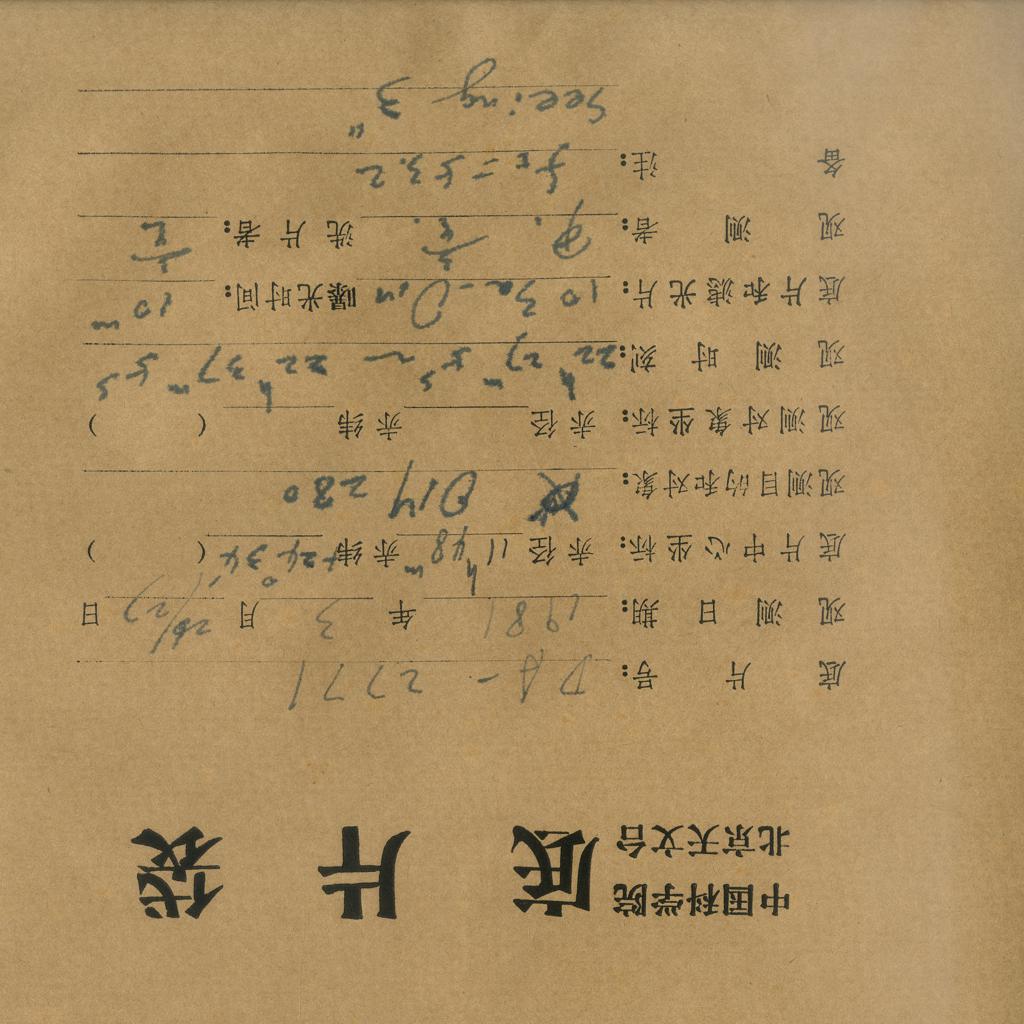 中国科学院
北京天文台
底片袋
底片号: DA-2771
观测日期: 1981 年 3 月 26/27 日
底片中心坐标: 赤径 11ʰ48ᵐ 赤纬 +24°34′ ( )
观测目的和对象: 280
观测对象坐标: 赤径 赤纬 ( )
观测时刻: 22ʰ27ᵐ5ˢ ~ 22ʰ37ᵐ5ˢ
底片和滤光片: 103a-O 曝光时间: 10ᵐ
观测者: 洗片者:
备注: = 53.2
Seeing 3"